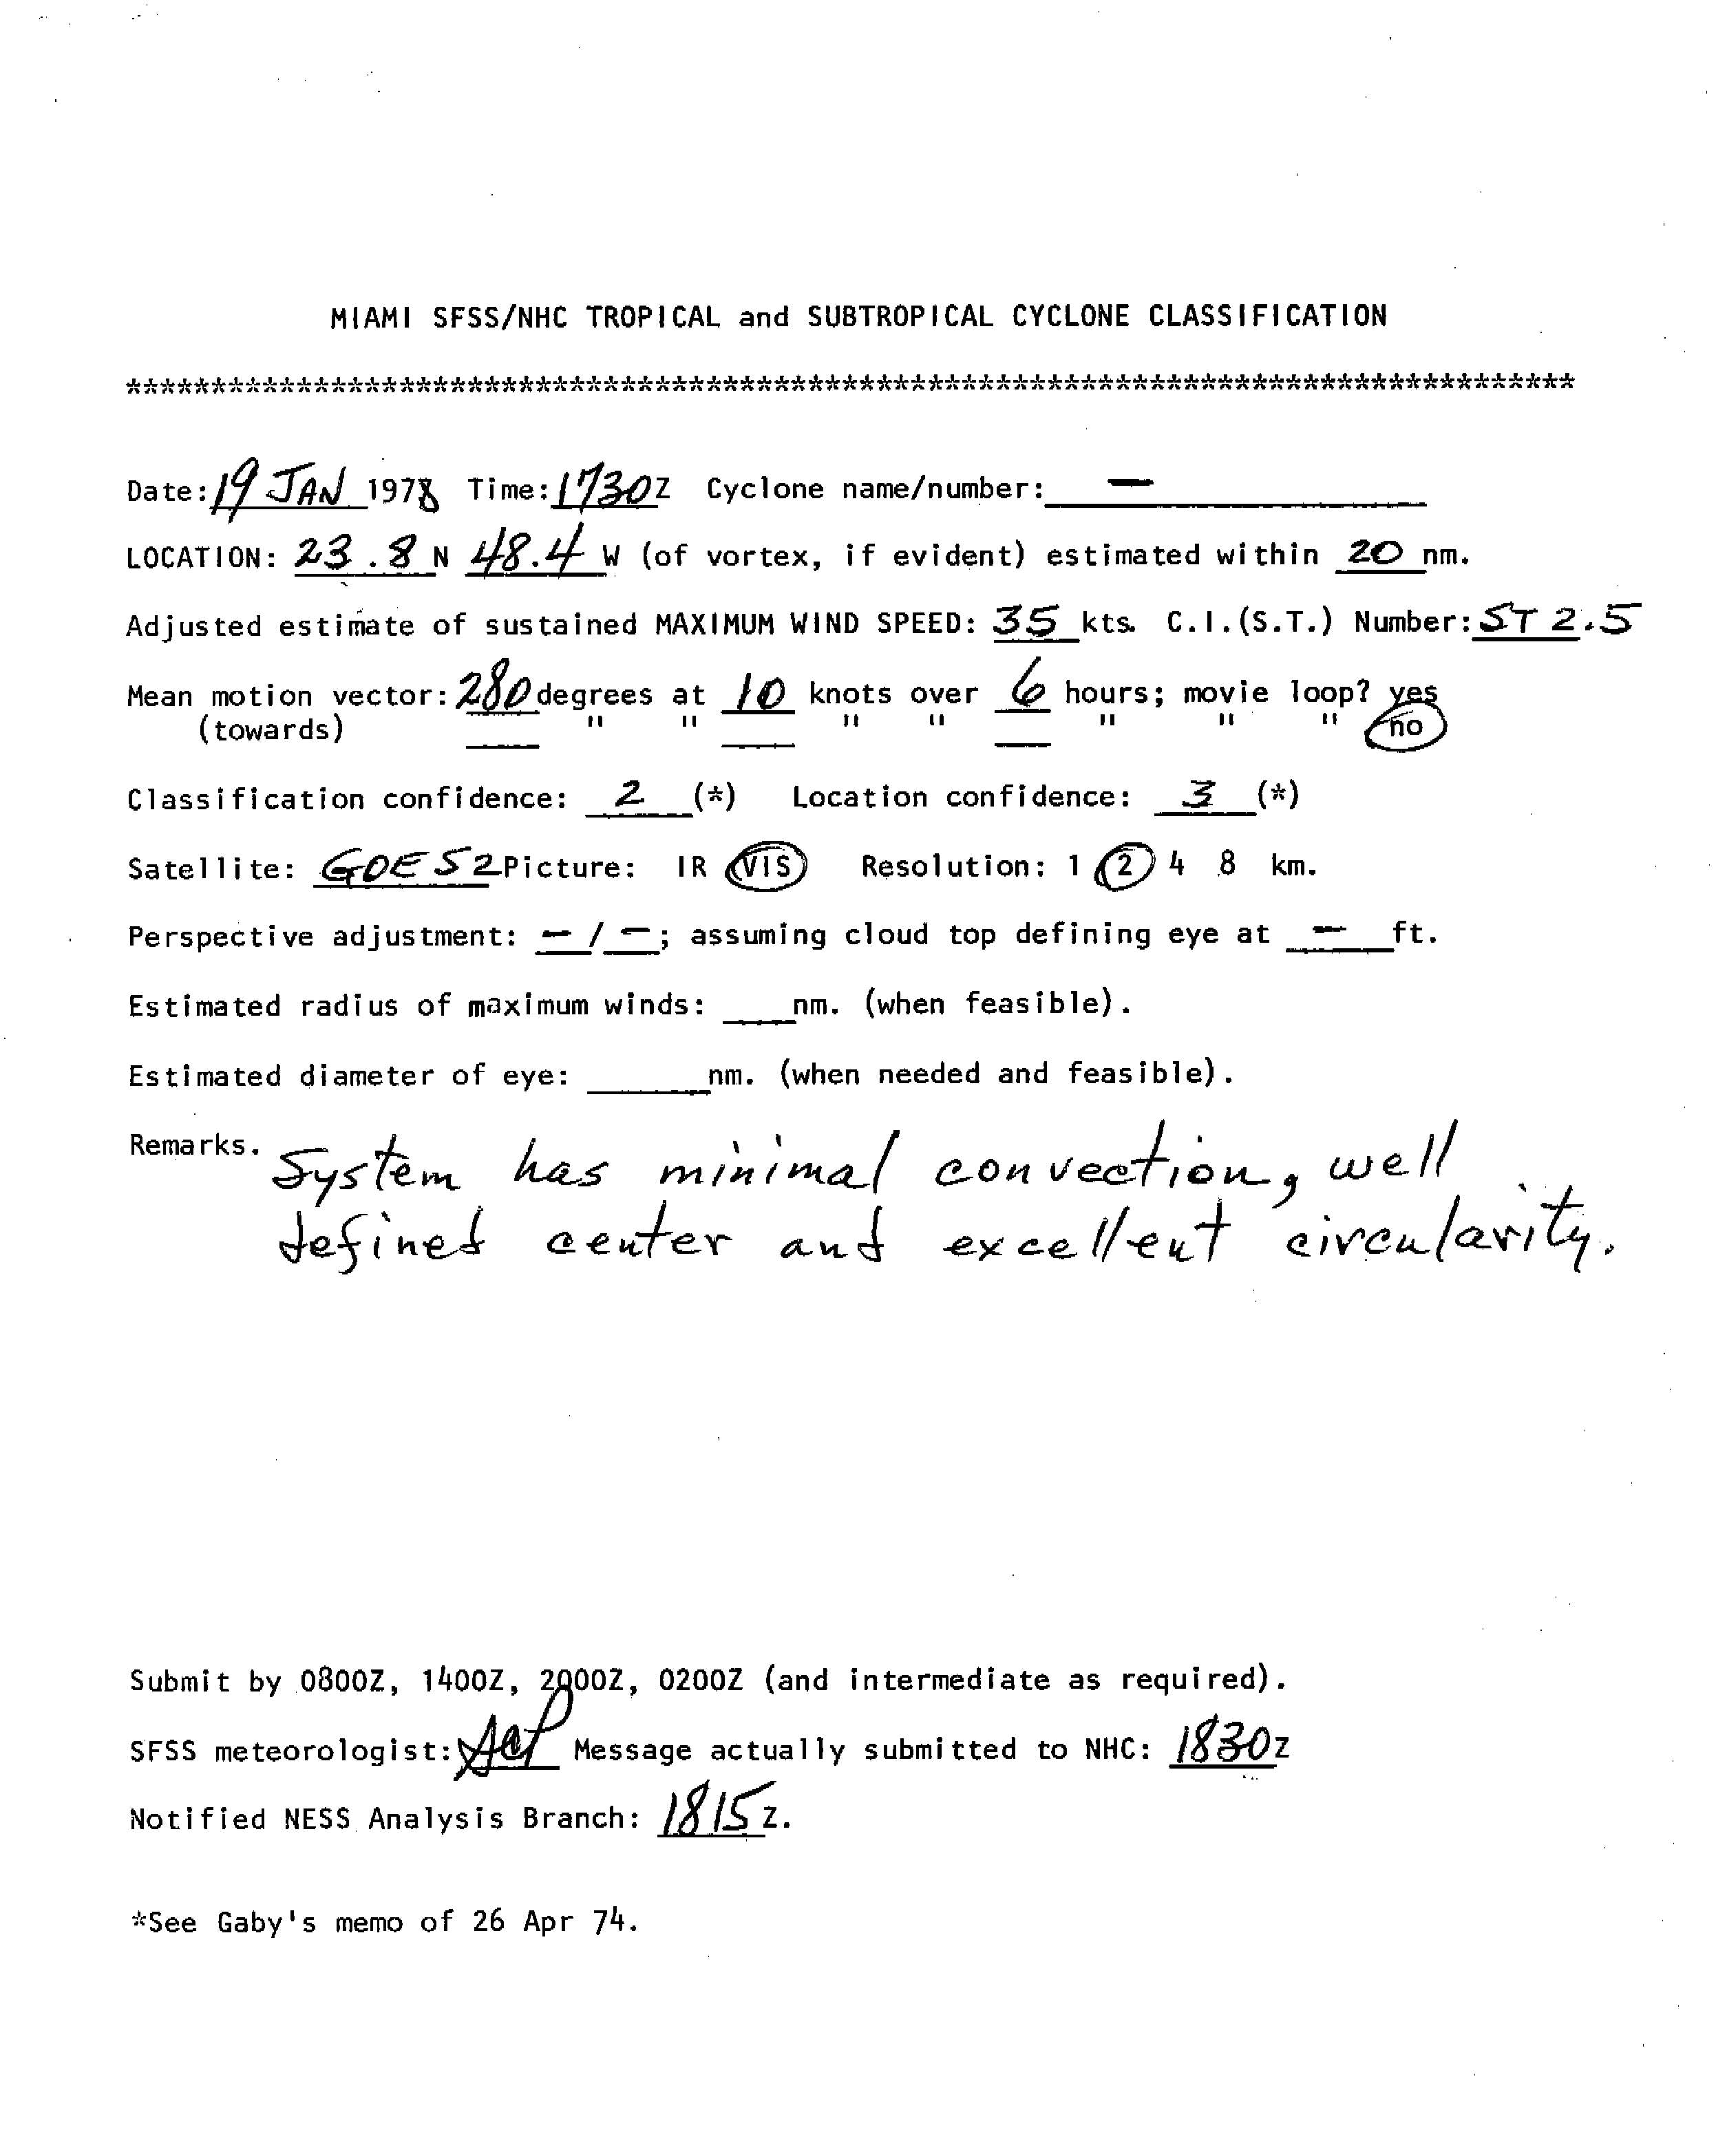 MIAMI SFSS/NHC TROPICAL and SUBTROPICAL CYCLONE CLASSIFICATION
*************************************************************************************
Date: 19 JAN 1978 Time: 1730Z Cyclone name/number: —
LOCATION: 23.8 N 48.4 W (of vortex, if evident) estimated within 20 nm.
Adjusted estimate of sustained MAXIMUM WIND SPEED: 35 kts. C.I.(S.T.) Number: ST 2.5
Mean motion vector: 280 degrees at 10 knots over 6 hours; movie loop? yes
(towards) ____ " " ____ " " ___ " " " no
Classification confidence: 2 (*) Location confidence: 3 (*)
Satellite: GOES 2 Picture: IR VIS Resolution: 1 2 4 8 km.
Perspective adjustment: - / -; assuming cloud top defining eye at — ft.
Estimated radius of maximum winds: ____nm. (when feasible).
Estimated diameter of eye: _______nm. (when needed and feasible).
Remarks. System has minimal convection, well
defined center and excellent circularity.
Submit by 0800Z, 1400Z, 2000Z, 0200Z (and intermediate as required).
SFSS meteorologist: Message actually submitted to NHC: 1830Z
Notified NESS Analysis Branch: 1815Z.
*See Gaby's memo of 26 Apr 74.